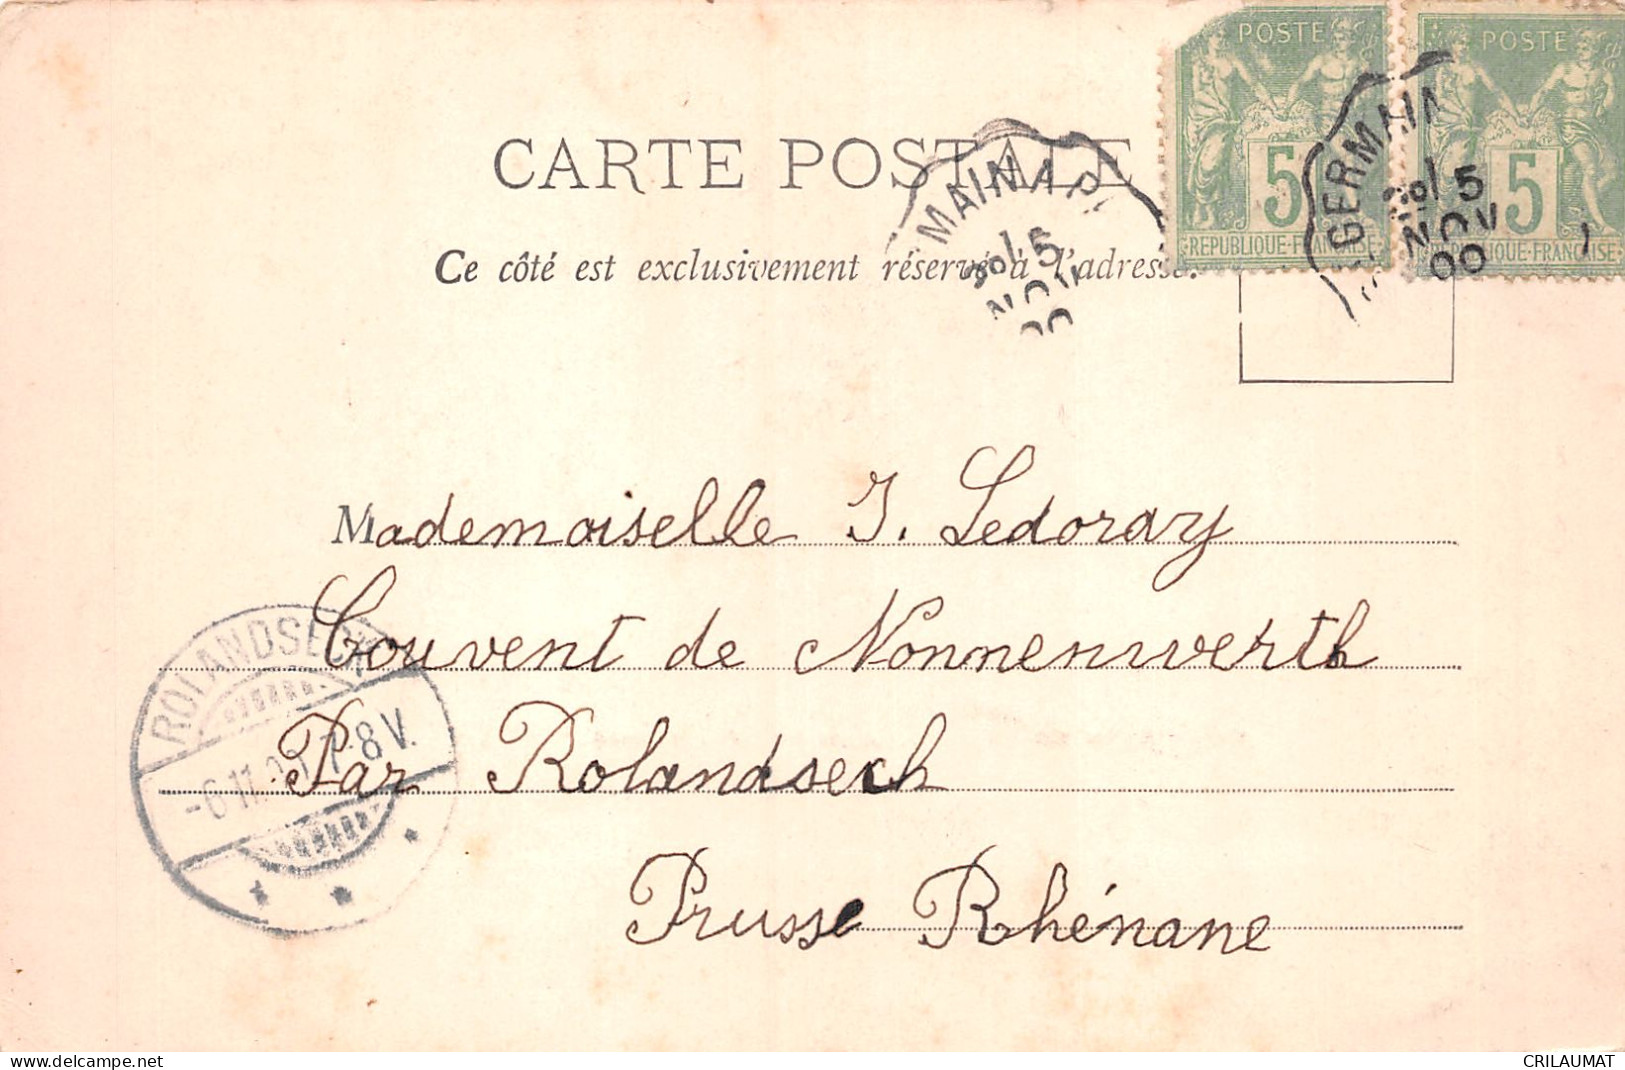 POSTE
POSTE
5
5
REPUBLIQUE·FRANÇAISE
REPUBLIQUE·FRANÇAISE
MAIN A P
5
NOV
GERMAIN
5
NOV
00
CARTE POSTALE
Ce côté est exclusivement réservé à l'adresse.
Mademoiselle J. Ledoray
Couvent de Nonnenwerth
Par Rolandseck
Prusse Rhénane
ROLANDSECK
-6.11. 7-8V.
delcampe.net
CRILAUMAT